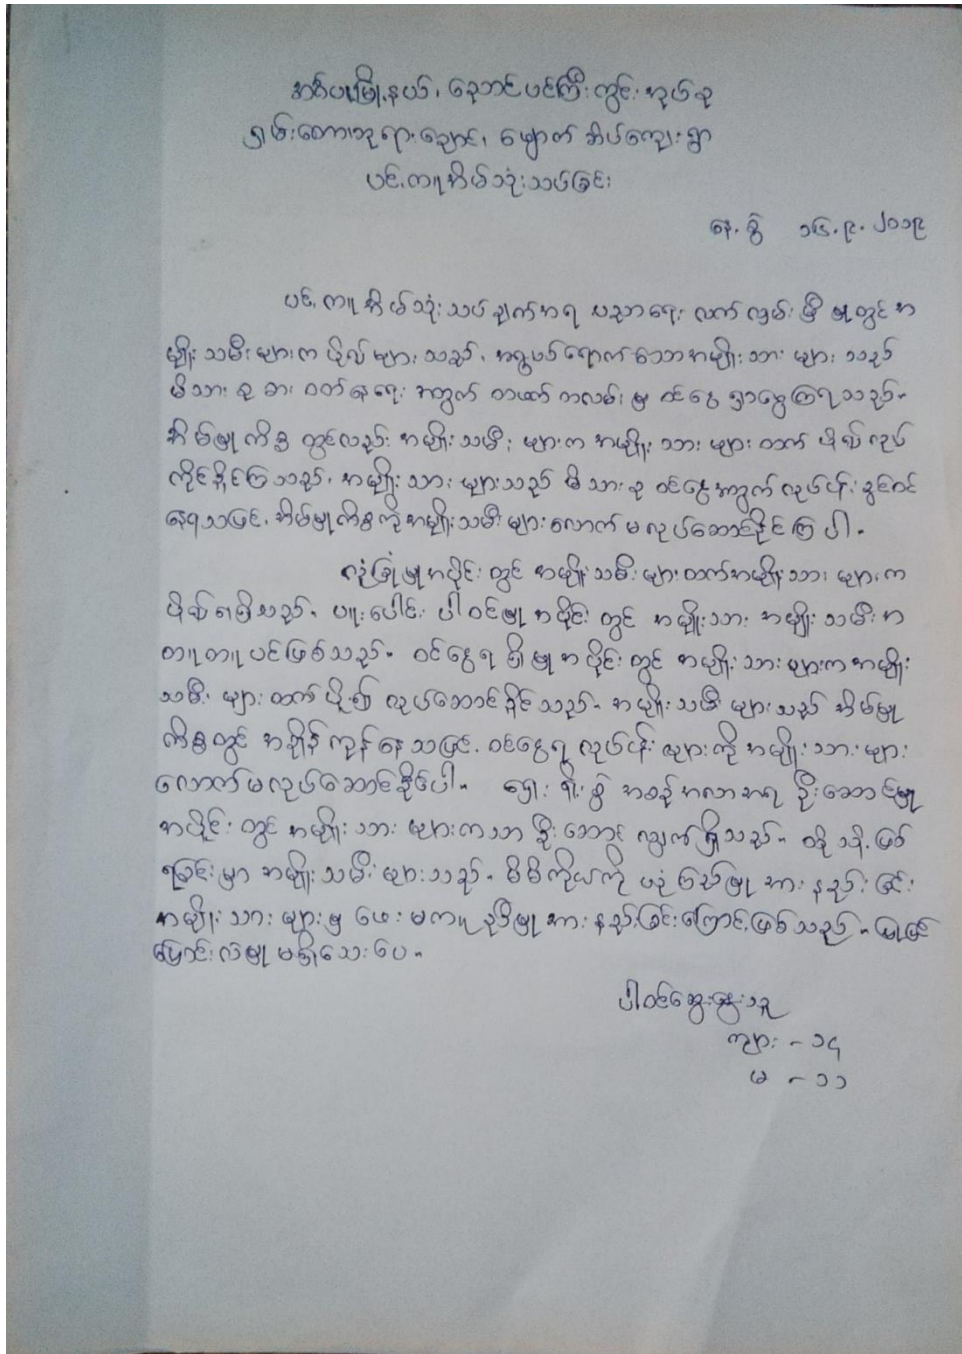 အင်္ဂပူမြို့နယ်၊ ညောင်ပင်ကြီးကွင်းအုပ်စု
ရှမ်းတောဘုရားချောင်၊ မျောက်အိပ်ကျေးရွာ
ပင့်ကူအိမ်သုံးသပ်ခြင်း
နေ့စွဲ ၁၆.၉.၂၀၁၉
ပင့်ကူအိမ်သုံးသပ်ချက်အရ ပညာရေး လက်လှမ်းမှီမှုတွင် အ
မျိုးသမီးများက ပိုလှ်များသည်၊ အရွယ်ရောက်သောအမျိုးသားများသည်
မိသားစု စား ဝတ်နေရေးအတွက် တဖက်တလမ်းမှ ဝင်ငွေရှာဖွေကြရသည်။
အိမ်မှုကိစ္စတွင်လည်း အမျိုးသမီးများက အမျိုးသားများထက် ပို၍လုပ်
ကိုင်နိုင်ကြသည်၊ အမျိုးသားများသည် မိသားစုဝင်ငွေအတွက်လုပ်ငန်းခွင်ဝင်
နေရသဖြင့်၊ အိမ်မှုကိစ္စကိုအမျိုးသမီးများလောက် မလုပ်ဆောင်နိုင်ကြပါ။
လုံခြုံမှုအပိုင်းတွင် အမျိုးသမီးများထက်အမျိုးသားများက
ပို၍ရရှိသည်။ ပူးပေါင်းပါဝင်မှုအပိုင်းတွင် အမျိုးသား အမျိုးသမီး အ
တူတူပင်ဖြစ်သည်။ ဝင်ငွေရရှိမှုအပိုင်းတွင် အမျိုးသားများကအမျိုး
သမီးများထက်ပို၍ လုပ်ဆောင်နိုင်သည်။ အမျိုးသမီးများသည် အိမ်မှု
ကိစ္စတွင် အချိန်ကုန်နေသဖြင့်၊ ဝင်ငွေရလုပ်ငန်းများကို အမျိုးသားများ
လောက်မလုပ်ဆောင်နိုင်ပါ။ ရှေးရိုးစွဲ အစဉ်အလာအရ ဦးဆောင်မှု
အပိုင်းတွင် အမျိုးသားများကသာဦးဆောင်လျှက်ရှိသည်။ ထိုသို့ဖြစ်
ရခြင်းမှာ အမျိုးသမီးများသည်။ မိမိကိုယ်ကို ယုံကြည်မှုအားနည်းခြင်း
အမျိုးသားများမှ ဖေးမကူညီမှုအားနည်းခြင်းကြောင့်ဖြစ်သည်။ ပြုပြင်
ပြောင်းလဲမှု မရှိသေးပေ။
ပါဝင်ဆွေးနွေးသူ
ကျား - ၁၄
မ - ၁၁